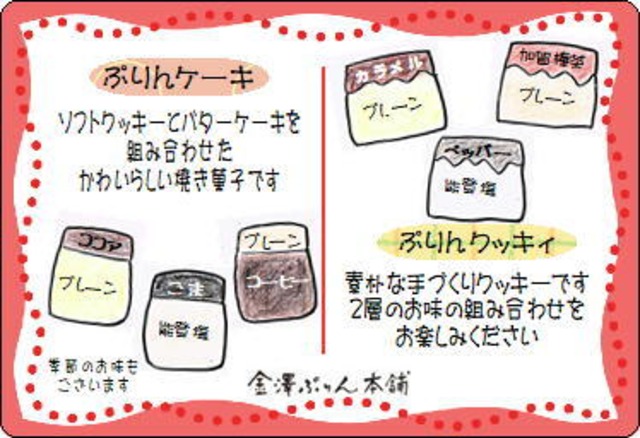 ぷりんケーキ
ソフトクッキーとバターケーキを
組み合わせた
かわいらしい焼き菓子です
ココア
プレーン
ごま
能登塩
プレーン
コーヒー
季節のお味も
ございます
カラメル
プレーン
加賀棒茶
プレーン
ペッパー
能登塩
ぷりんクッキィ
素朴な手づくりクッキーです
2層のお味の組み合わせを
お楽しみください
金澤ぷりん本舗